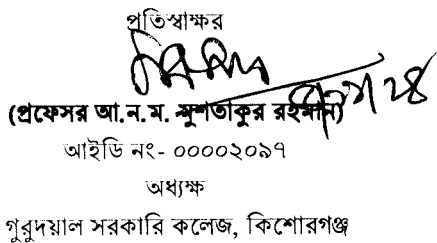 প্রতিস্বাক্ষর
(প্রফেসর আ.ন.ম. মুশতাকুর রহমান)
আইডি নং- ০০০০২০৯৭
অধ্যক্ষ
গুরুদয়াল সরকারি কলেজ, কিশোরগঞ্জ